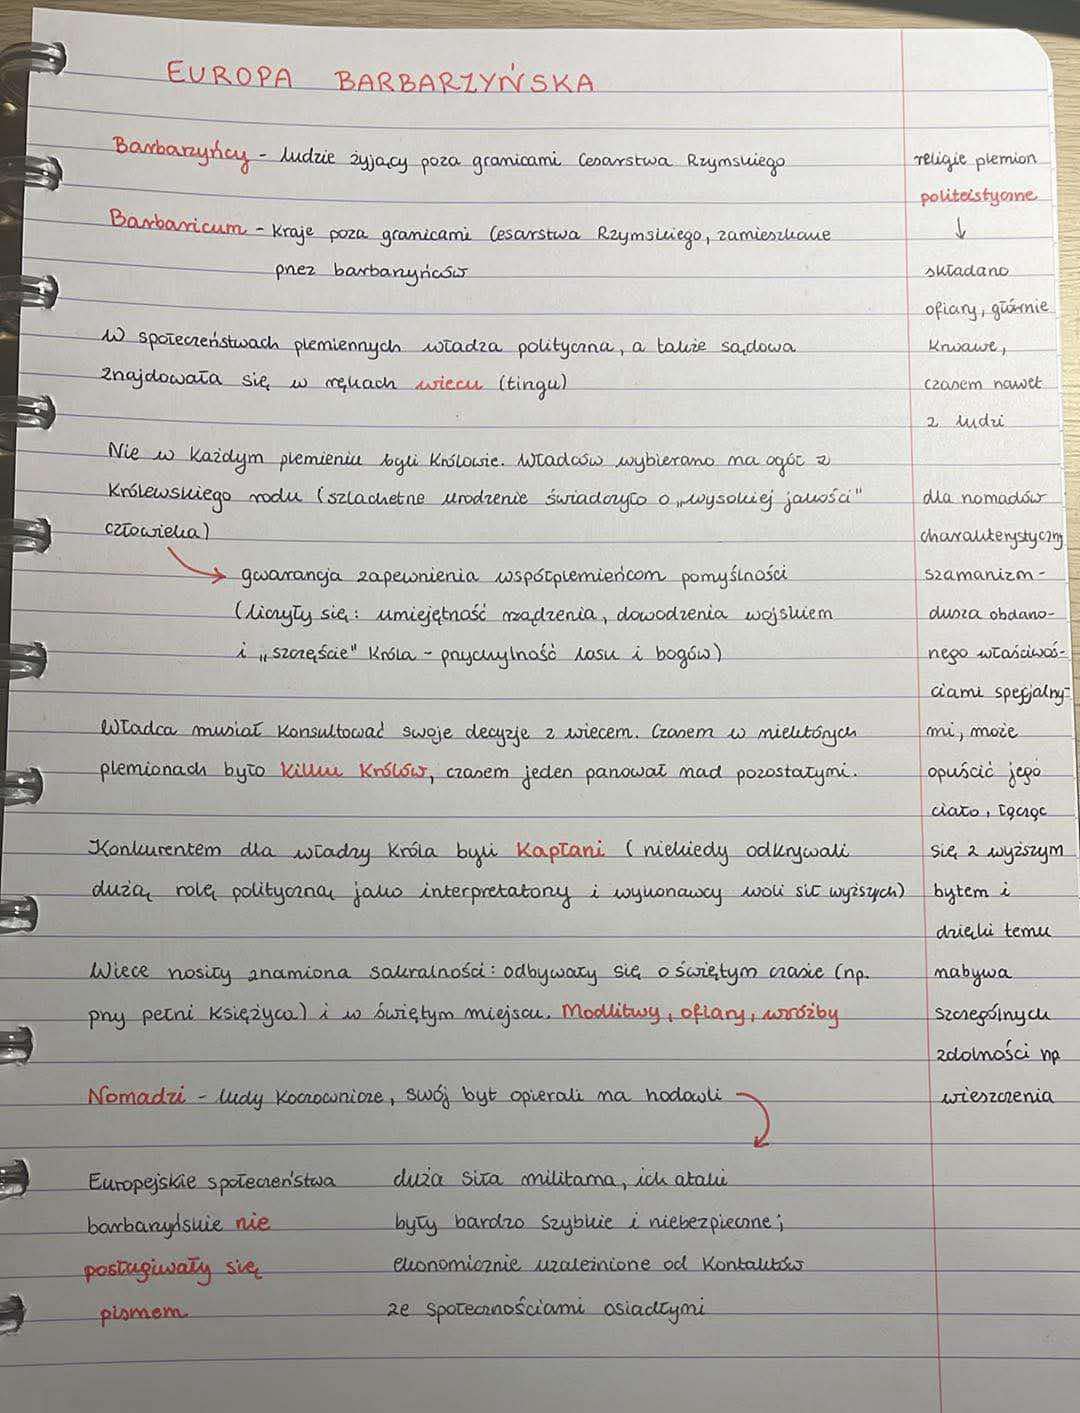 EUROPA BARBARZYŃSKA
Barbarzyńcy - ludzie żyjący poza granicami Cesarstwa Rzymskiego
Barbaricum - kraje poza granicami Cesarstwa Rzymskiego, zamieszkane
przez barbarzyńców
W społeczeństwach plemiennych władza polityczna, a także sądowa
znajdowała się w rękach wiecu (tingu)
Nie w każdym plemieniu byli królowie. Władców wybierano na ogół z
królewskiego rodu (szlachetne urodzenie świadczyło o „wysokiej jakości"
człowieka)
gwarancja zapewnienia współplemieńcom pomyślności
(liczyły się: umiejętność rządzenia, dowodzenia wojskiem
i „szczęście" króla - przychylność losu i bogów)
Władca musiał konsultować swoje decyzje z wiecem. Czasem w niektórych
plemionach było kilku królów, czasem jeden panował nad pozostałymi.
Konkurentem dla władzy króla byli kapłani (niekiedy odkrywali
dużą rolę polityczną jako interpretatorzy i wykonawcy woli sił wyższych)
Wiece nosiły znamiona sakralności: odbywały się o świętym czasie (np.
przy pełni księżyca) i w świętym miejscu. Modlitwy, ofiary, wróżby
Nomadzi - ludy koczownicze, swój byt opierali na hodowli
duża siła militarna, ich ataki
były bardzo szybkie i niebezpieczne;
ekonomicznie uzależnione od kontaktów
ze społecznościami osiadłymi
Europejskie społeczeństwa
barbarzyńskie nie
posługiwały się
pismem
religie plemion
politeistyczne
↓
składano
ofiary, głównie
krwawe,
czasem nawet
z ludzi
dla nomadów
charakterystyczny
szamanizm -
dusza obdano-
nego właściwoś-
ciami specjalny-
mi, może
opuścić jego
ciało, łącząc
się z wyższym
bytem i
dzięki temu
nabywa
szczególnych
zdolności np
wieszczenia